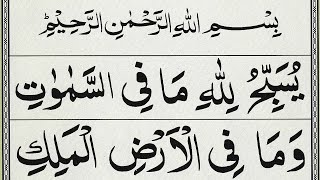 بِسْمِ اللهِ الرَّحْمٰنِ الرَّحِيْمِ
يُسَبِّحُ لِلّٰهِ مَا فِى السَّمٰوٰتِ
وَمَا فِى الْاَرْضِ الْمَلِكِ